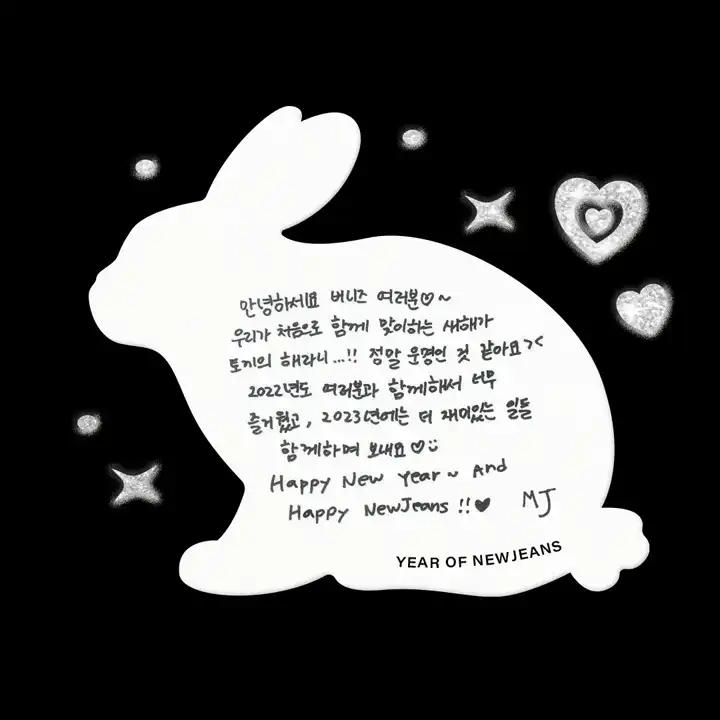 안녕하세요 버니즈 여러분♡~
우리가 처음으로 함께 맞이하는 새해가
토끼의 해라니...!! 정말 운명인 것 같아요><
2022년도 여러분과 함께해서 너무
즐거웠고, 2023년에는 더 재미있는 일들
함께하며 보내요♡☺
Happy New Year~ And
Happy NewJeans !!♥ MJ
YEAR OF NEWJEANS